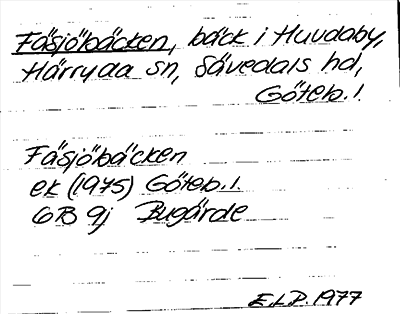 Fäsjöbäcken, bäck i Huvdaby,
Härryda sn, Sävedals hd,
Göteb. l.
Fäsjöbäcken
ek (1975) Göteb. l.
6B 9j Bugärde
E.L.P. 1977